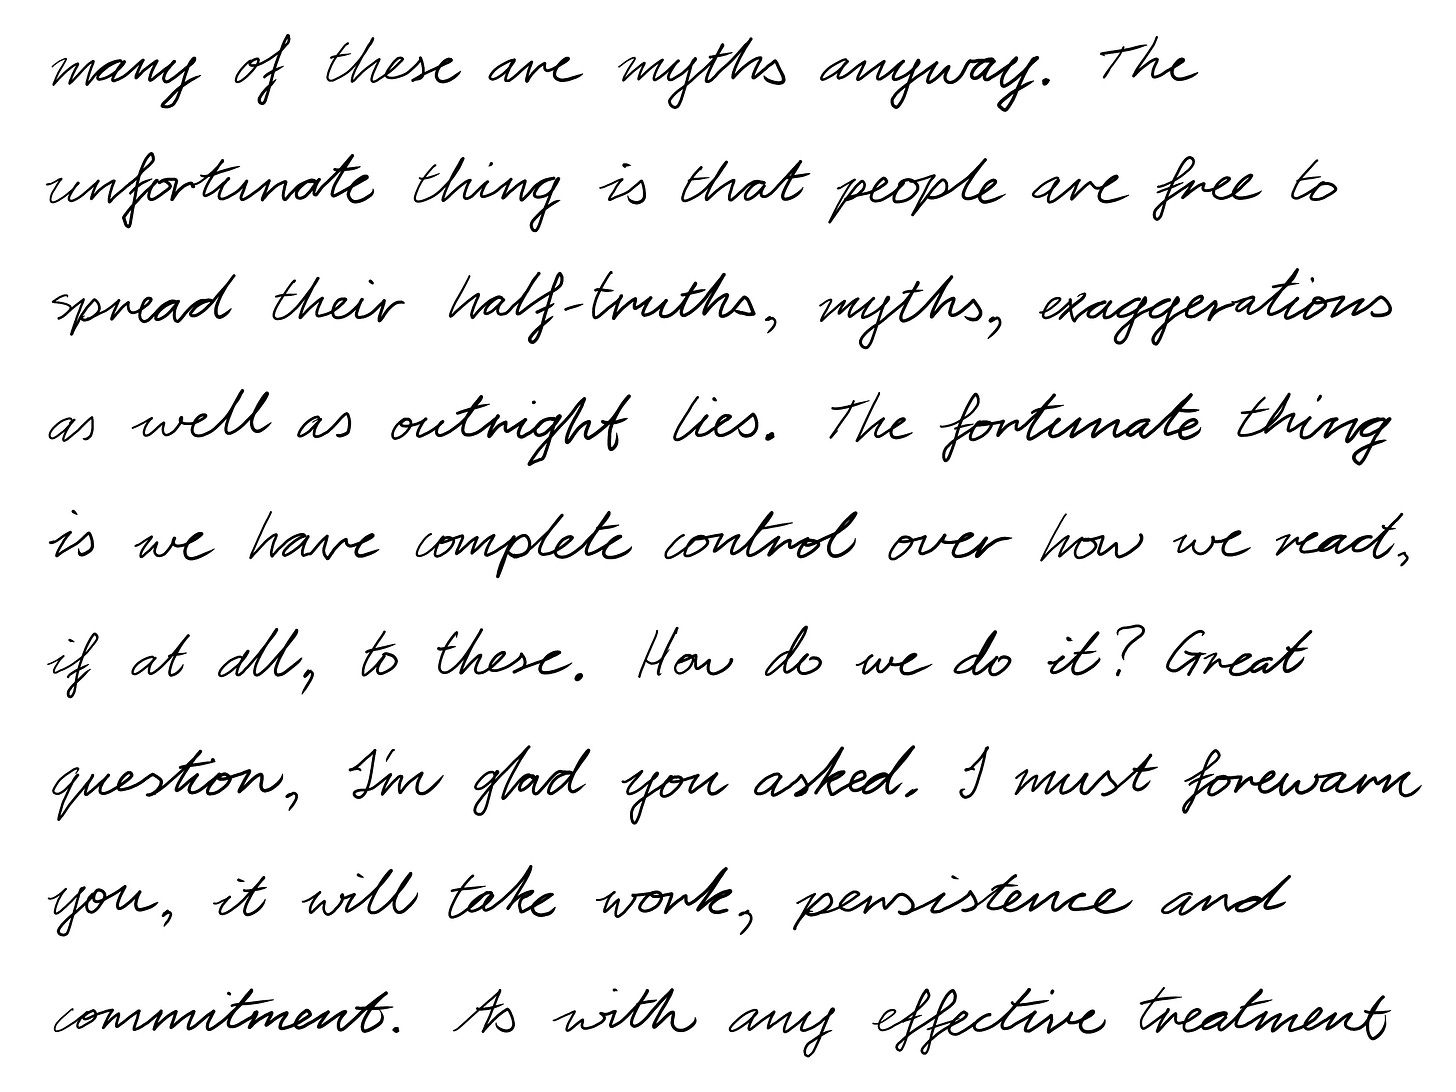 many of these are myths anyway. The
unfortunate thing is that people are free to
spread their half-truths, myths, exaggerations
as well as outright lies. The fortunate thing
is we have complete control over how we react,
if at all, to these. How do we do it? Great
question, I'm glad you asked. I must forewarn
you, it will take work, persistence and
commitment. As with any effective treatment